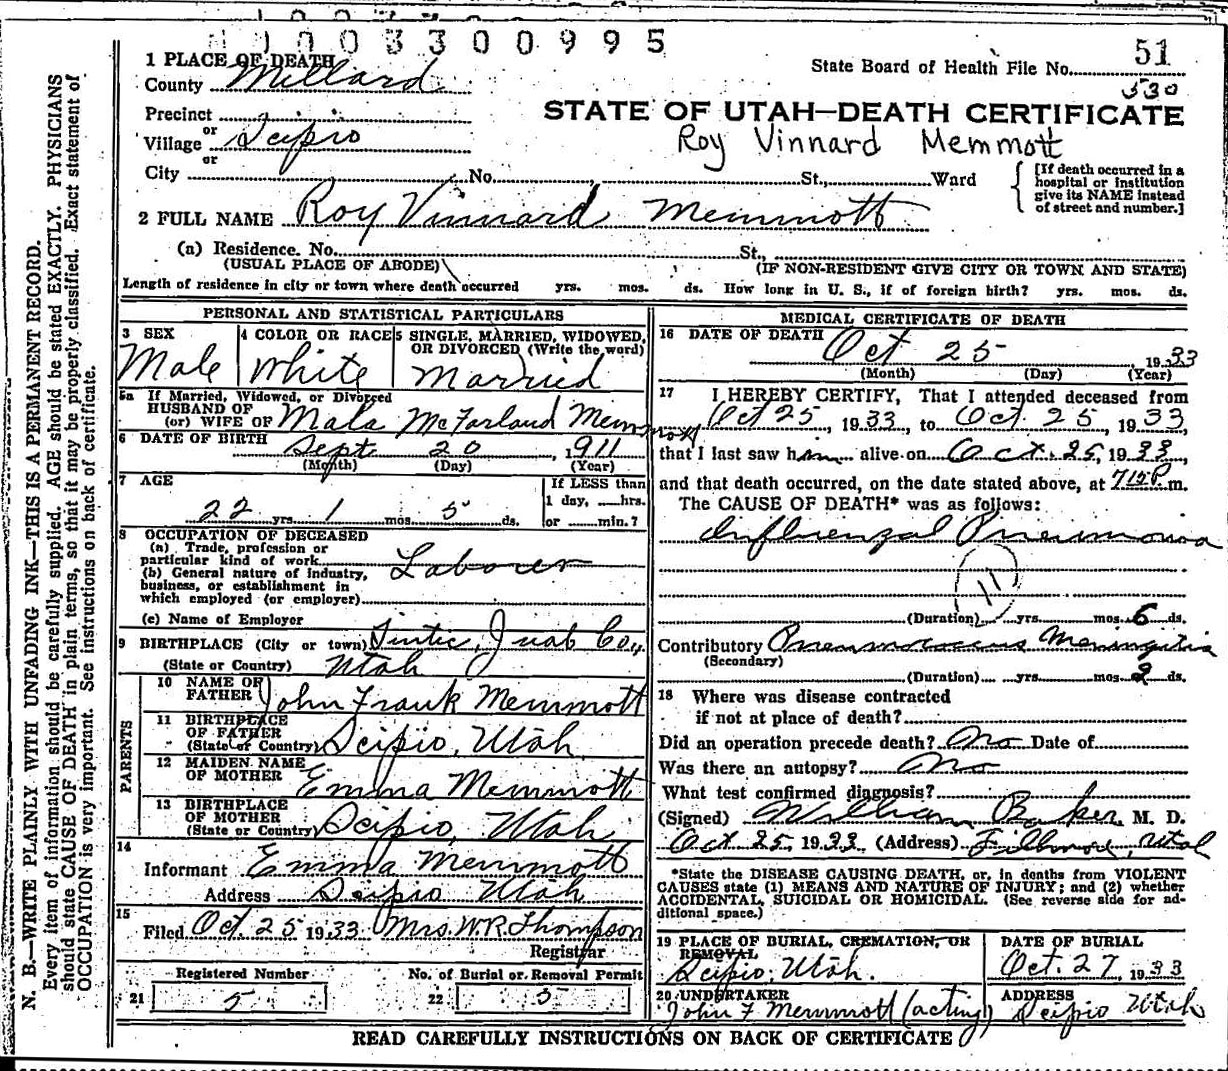 003300995
51
State Board of Health File No.
530
STATE OF UTAH—DEATH CERTIFICATE
Roy Vinnard Memmott
1 PLACE OF DEATH
County Millard
Precinct
or
Village Scipio
or
City No. , St., Ward
[If death occurred in a hospital or institution give its NAME instead of street and number.]
2 FULL NAME Roy Vinnard Memmott
(a) Residence. No. St.,
(USUAL PLACE OF ABODE) (IF NON-RESIDENT GIVE CITY OR TOWN AND STATE)
Length of residence in city or town where death occurred yrs. mos. ds. How long in U. S., if of foreign birth? yrs. mos. ds.
PERSONAL AND STATISTICAL PARTICULARS
3 SEX
Male
4 COLOR OR RACE
White
5 SINGLE, MARRIED, WIDOWED,
OR DIVORCED (Write the word)
Married
5a If Married, Widowed, or Divorced
HUSBAND OF
(or) WIFE OF Mala McFarland Memmott
6 DATE OF BIRTH Sept 20, 1911
(Month) (Day) (Year)
7 AGE
22 yrs. 1 mos. 5 ds.
If LESS than
1 day, hrs.
or min.?
8 OCCUPATION OF DECEASED
(a) Trade, profession or
particular kind of work
Laborer
(b) General nature of industry,
business, or establishment in
which employed (or employer)
(c) Name of Employer
9 BIRTHPLACE (City or town) Tintic, Juab Co.,
(State or Country) Utah
PARENTS
10 NAME OF
FATHER John Frank Memmott
11 BIRTHPLACE
OF FATHER
(State or Country) Scipio, Utah
12 MAIDEN NAME
OF MOTHER Emma Memmott
13 BIRTHPLACE
OF MOTHER
(State or Country) Scipio, Utah
14
Informant Emma Memmott
Address Scipio Utah
15
Filed Oct. 25 1933 Mrs. W.R. Thompson
Registrar
Registered Number
21 5
No. of Burial or Removal Permit
22 5
MEDICAL CERTIFICATE OF DEATH
16 DATE OF DEATH Oct 25 1933
(Month) (Day) (Year)
17 I HEREBY CERTIFY, That I attended deceased from
Oct 25, 1933, to Oct. 25, 1933,
that I last saw him alive on Oct. 25, 1933,
and that death occurred, on the date stated above, at 715P m.
The CAUSE OF DEATH* was as follows:
Influenzal Pneumonia
11
(Duration) yrs. mos. 6 ds.
Contributory Pneumococcus Meningitis
(Secondary)
(Duration) yrs. mos. 2 ds.
18 Where was disease contracted
if not at place of death?
Did an operation precede death? No Date of
Was there an autopsy? No
What test confirmed diagnosis?
(Signed) William Baker, M. D.
Oct 25, 1933 (Address) Fillmore, Utah
*State the DISEASE CAUSING DEATH, or, in deaths from VIOLENT
CAUSES state (1) MEANS AND NATURE OF INJURY; and (2) whether
ACCIDENTAL, SUICIDAL OR HOMICIDAL. (See reverse side for ad-
ditional space.)
19 PLACE OF BURIAL, CREMATION, OR
REMOVAL
Scipio, Utah.
DATE OF BURIAL
Oct. 27, 1933
20 UNDERTAKER
John F Memmott (acting)
ADDRESS
Scipio Utah
READ CAREFULLY INSTRUCTIONS ON BACK OF CERTIFICATE
N. B.—WRITE PLAINLY WITH UNFADING INK—THIS IS A PERMANENT RECORD.
Every item of information should be carefully supplied. AGE should be stated EXACTLY. PHYSICIANS
should state CAUSE OF DEATH in plain terms, so that it may be properly classified. Exact statement of
OCCUPATION is very important. See instructions on back of certificate.